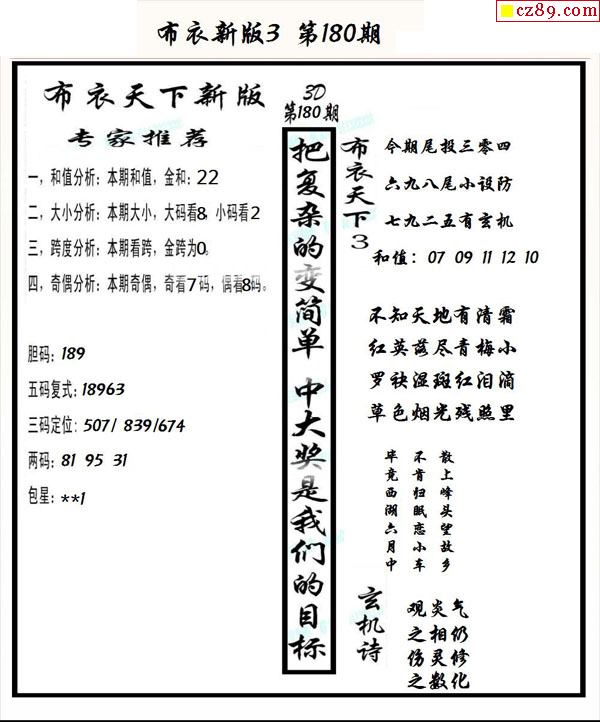 cz89.com
布衣新版3 第180期
布衣天下新版
专家推荐
一，和值分析：本期和值，金和：22
二，大小分析：本期大小，大码看8，小码看2
三，跨度分析：本期看跨，金跨为0。
四，奇偶分析：本期奇偶，奇看7码，偶看8码。
胆码：189
五码复式：18963
三码定位：507/ 839/674
两码：81 95 31
包星：**1
3D
第180期
把复杂的变简单 中大奖是我们的目标
布衣天下3
今期尾投三零四
六九八尾小设防
七九二五有玄机
和值：07 09 11 12 10
不知天地有清霜
红英落尽青梅小
罗袂湿斑红泪滴
草色烟光残照里
散上峰头望故乡
不肯归眠恋小车
毕竟西湖六月中
玄机诗
观炎气
之相仍
伤灵修
之数化